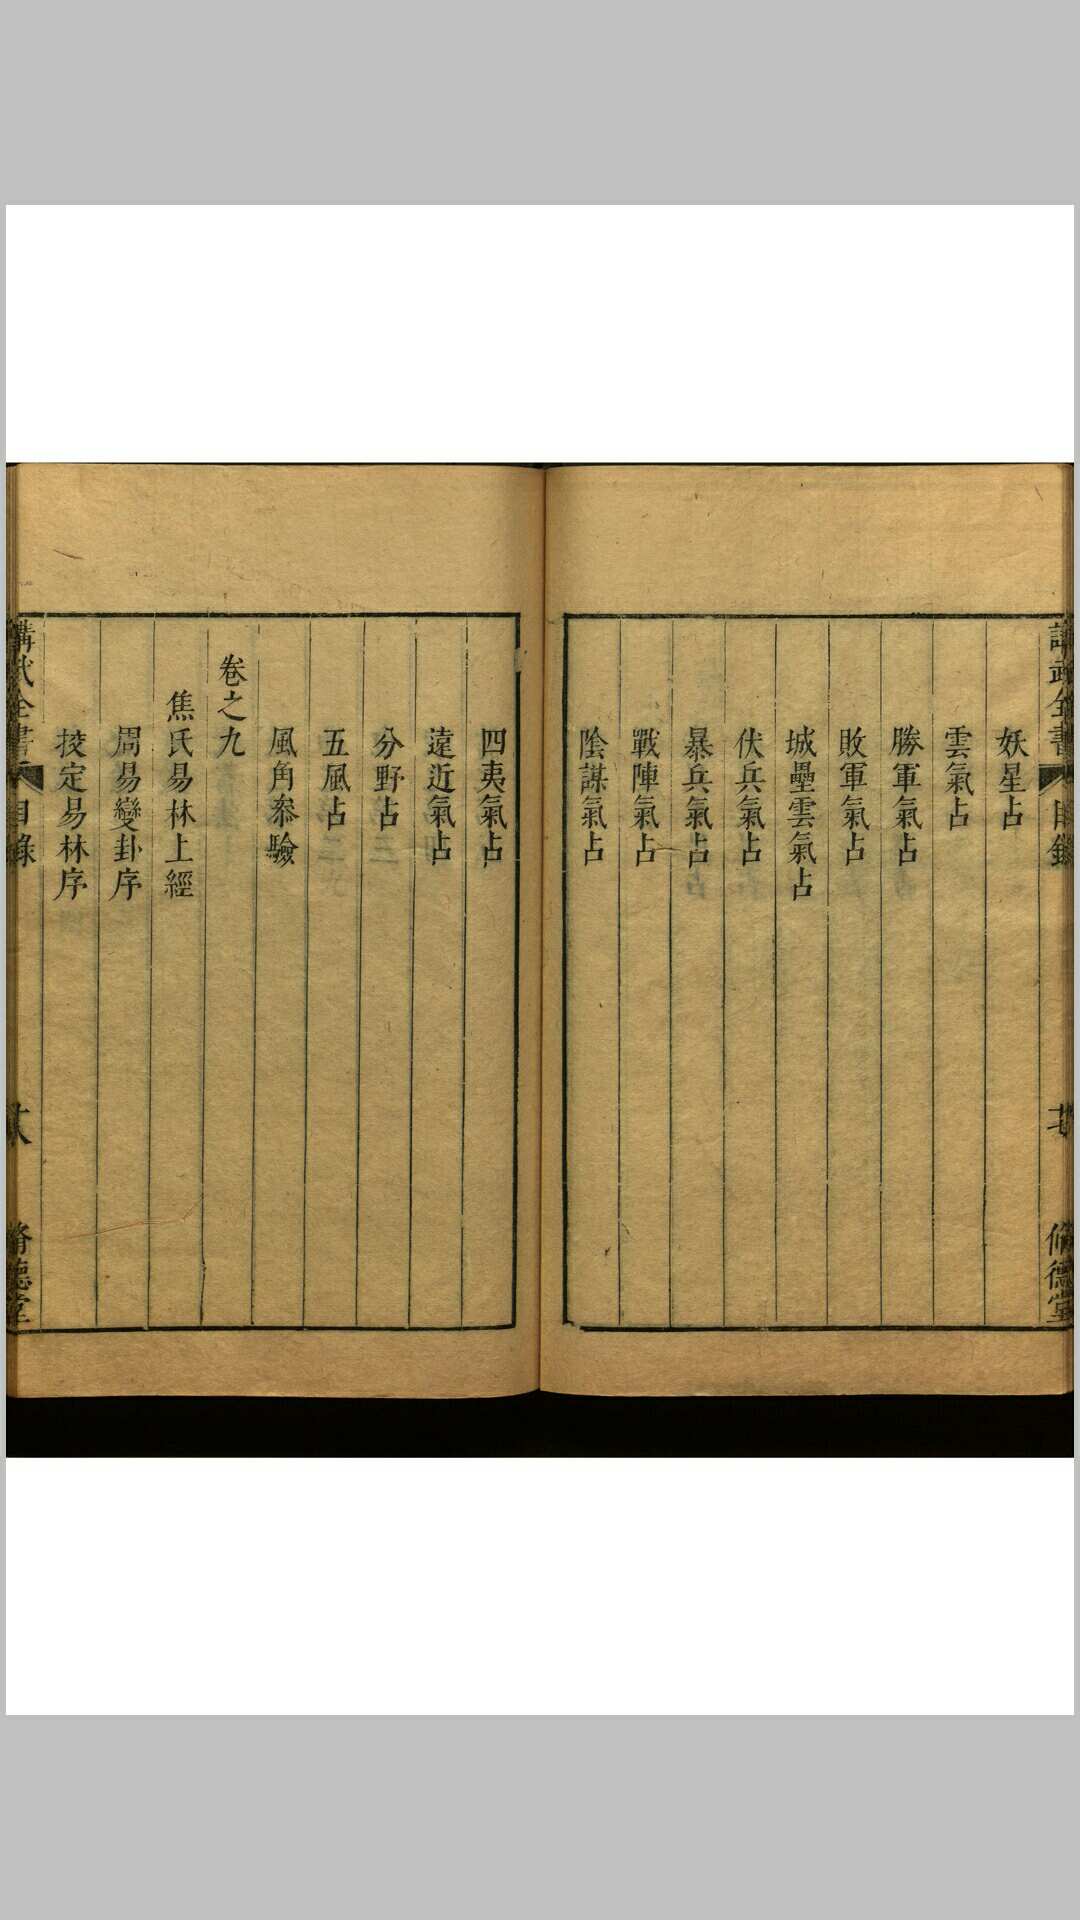 講武全書
目錄
脩德堂
妖星占
雲氣占
勝軍氣占
敗軍氣占
城壘雲氣占
伏兵氣占
暴兵氣占
戰陣氣占
陰謀氣占
四夷氣占
遠近氣占
分野占
五風占
風角叅驗
卷之九
焦氏易林上經
周易變卦序
挍定易林序
講武全書
目錄
脩德堂